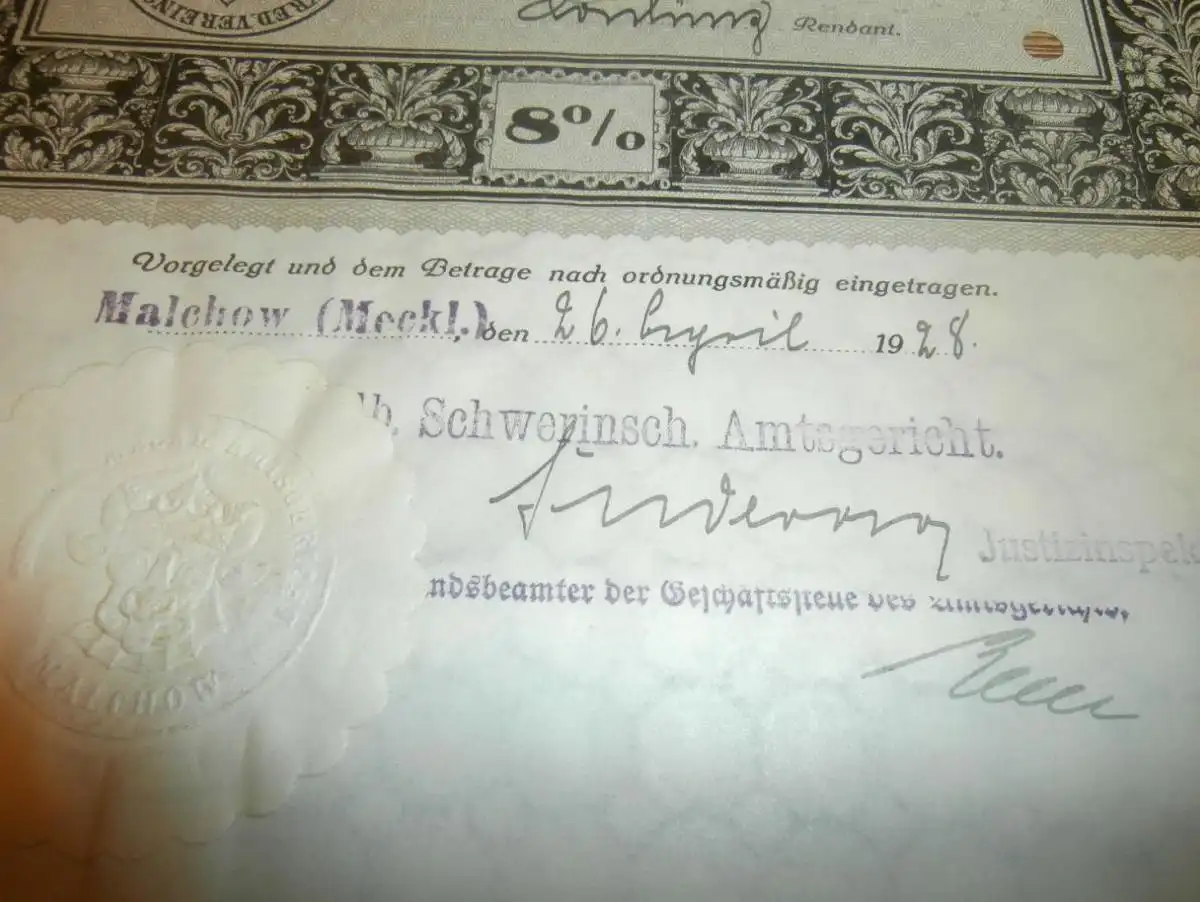 RED.VEREINS
Rendant.
8%
Vorgelegt und dem Betrage nach ordnungsmäßig eingetragen.
Malchow (Meckl.), den 26. April 1928.
lb. Schwerinsch. Amtsgericht.
Justizinspek
ndsbeamter der Geschäftsstelle des Amtsgerichts.
MALCHOW